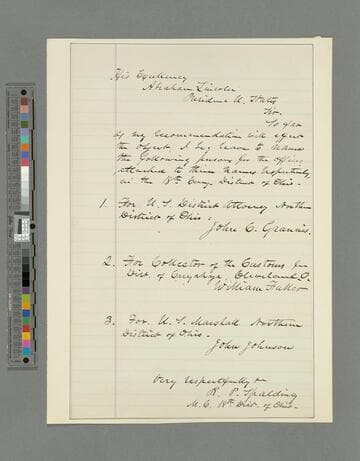 His Excellency
Abraham Lincoln
President U. States
Sir.
So far
as my recommendation will effect
the object, I beg leave to name
the following persons for the offices
attached to their names respectively
in the 18th Cong. District of Ohio -
1. For U. S. District Attorney Northn
District of Ohio:
John C. Grannis.
2. For Collector of the Customs for
Dist. of Cuyahoga, Cleveland, O.
William
3. For U. S. Marshall Northern
District of Ohio -
John Johnson
Very respectfully
R. P. Spalding
M. C. 18th Dist. of Ohio -